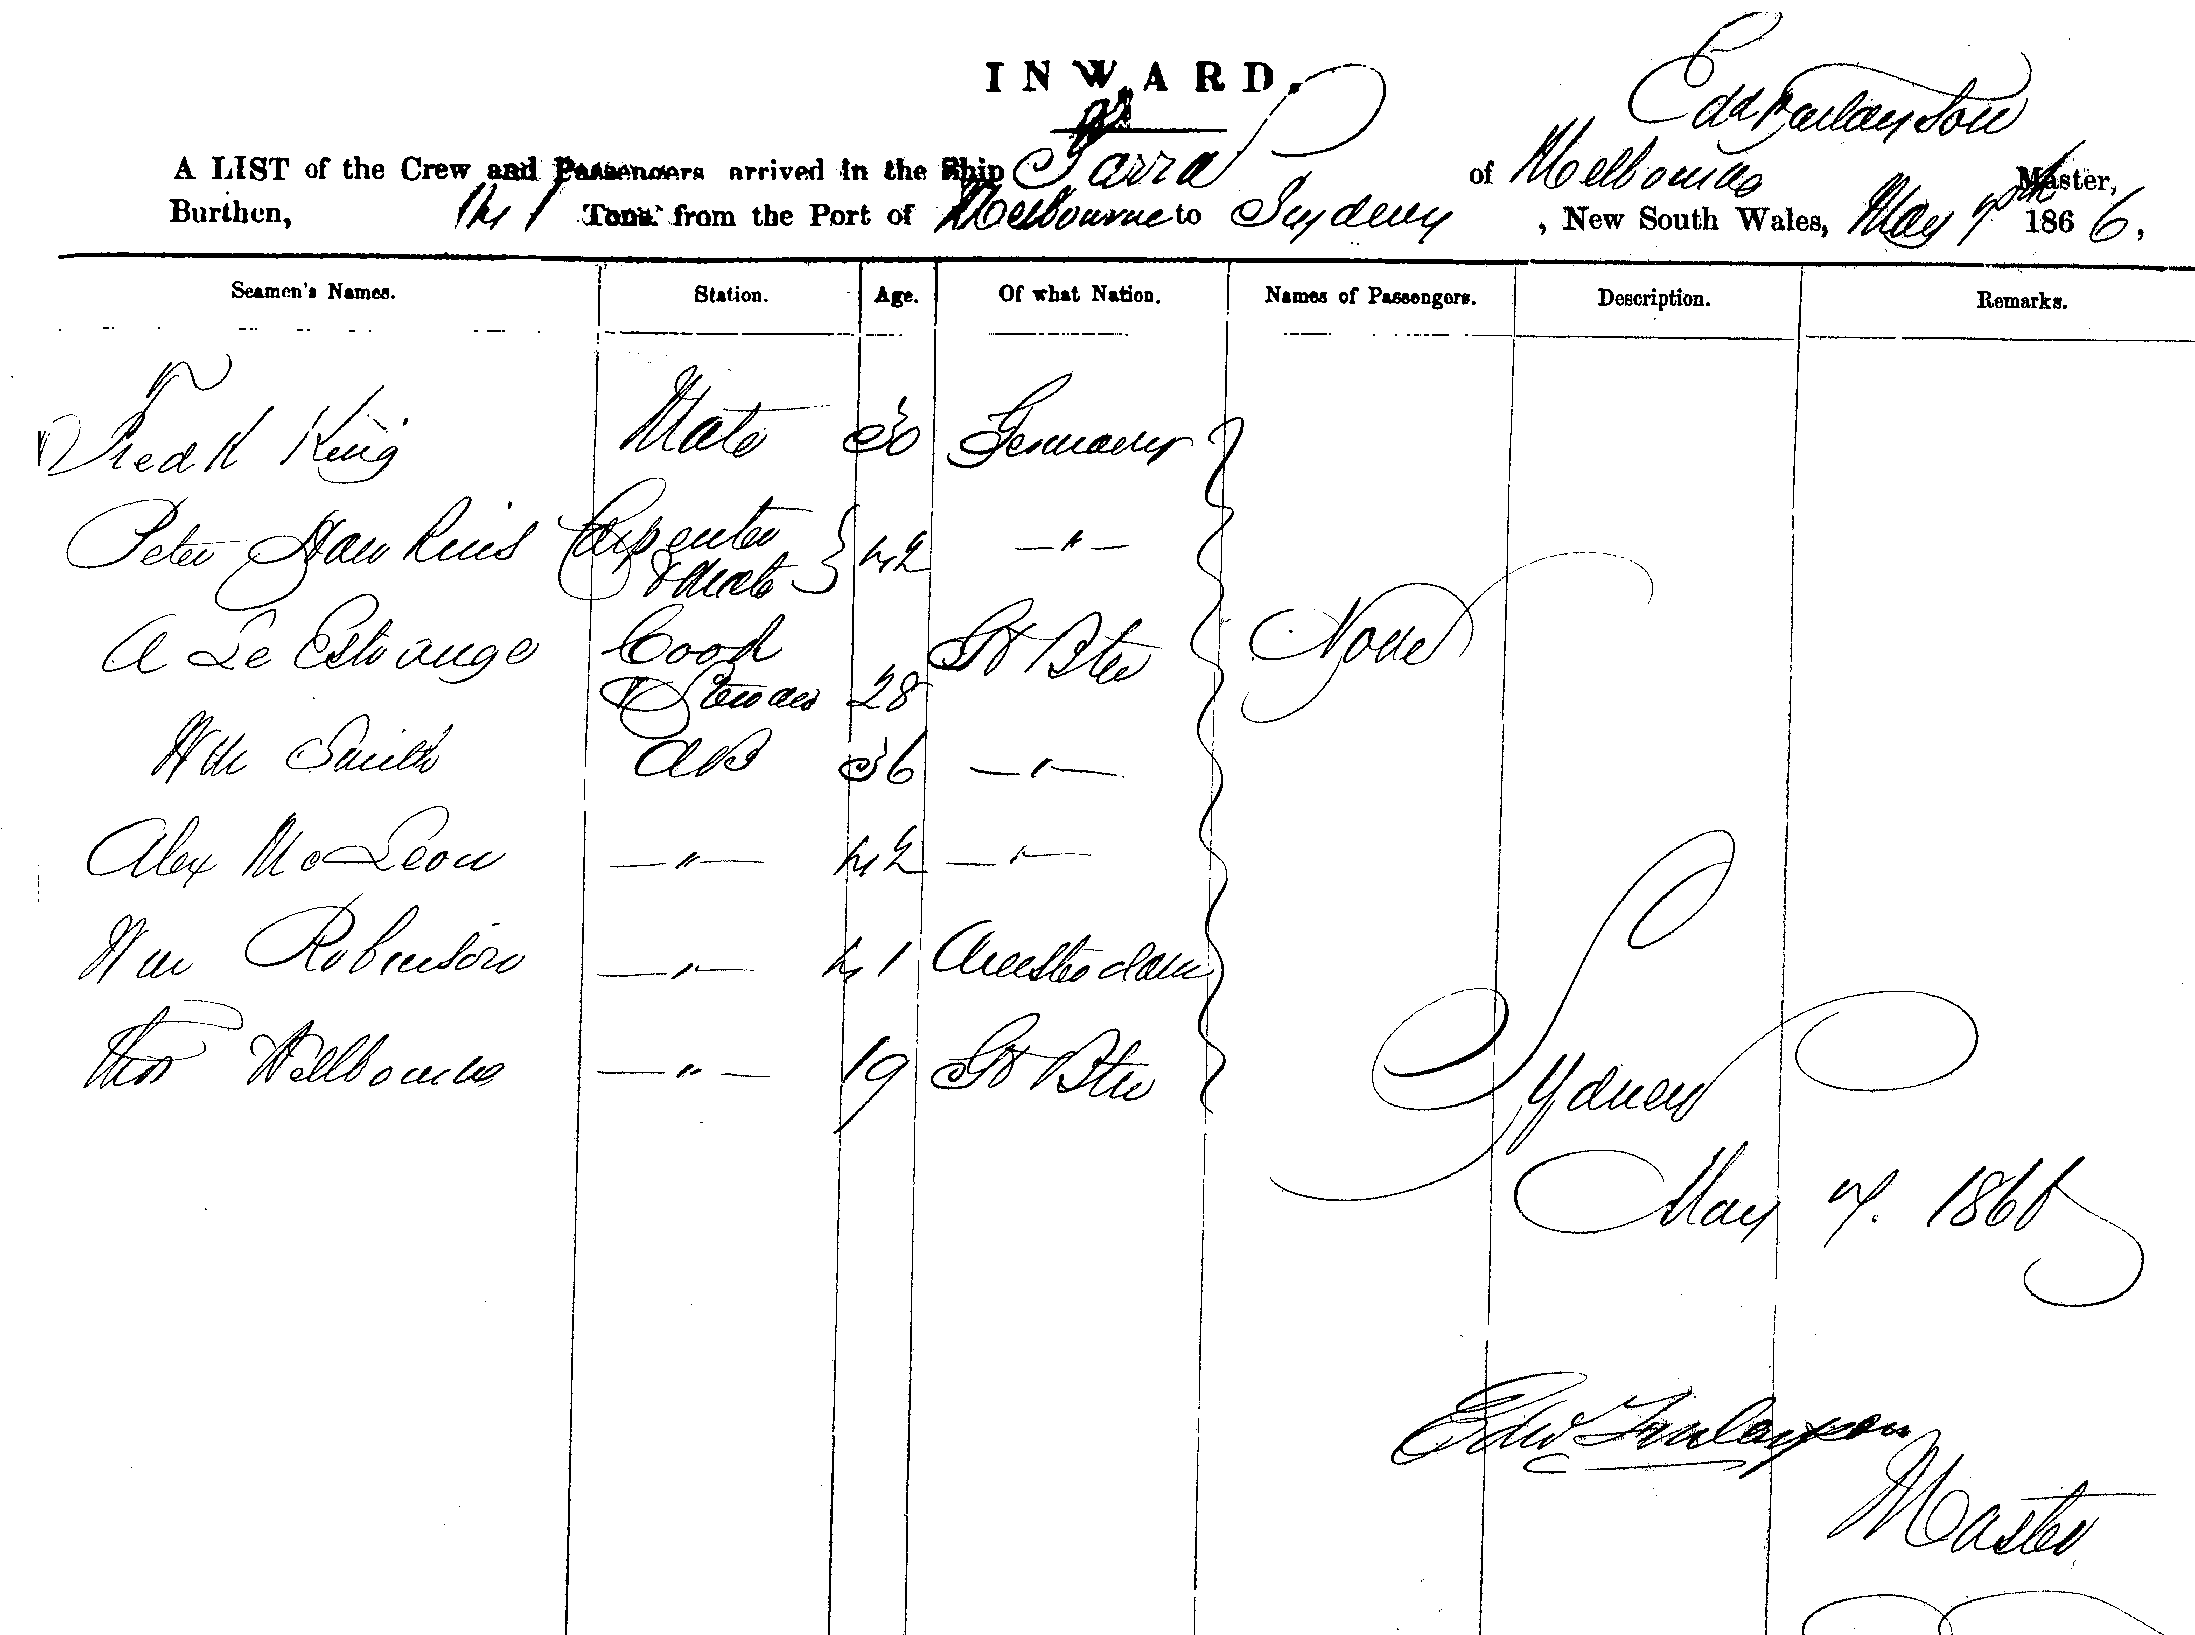 INWARD.
Edd Finlayson
A LIST of the Crew and Passengers arrived in the Ship Yarra of Melbourne Master,
Burthen, 141 Tons from the Port of Melbourne to Sydney, New South Wales, May 7th 1866,
Seamen's Names. Station. Age. Of what Nation. Names of Passengers. Description. Remarks.
Fredk King Mate 30 Germany
Peter Hawkins Carpenter & Mate } 42 — " —
A Le Estrange Cook & Steward 28 Gt Btn None
Wm Smith AB 36 — " —
Alex McLeon — " — 42 — " —
Wm Robinson — " — 41 Amsterdam
Thos Melbourne — " — 19 Gt Btn
Sydney
May 7. 1866
Edw Finlayson
Master